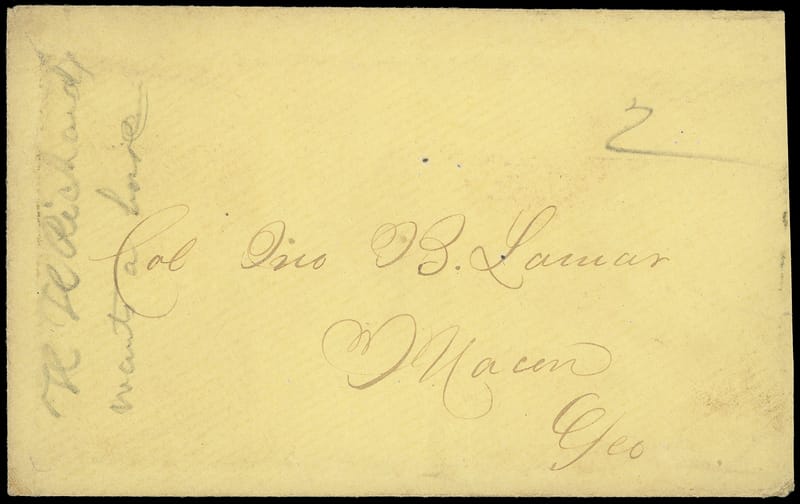 2
Col Jno B. Lamar
Macon
Geo
Richards
wants a